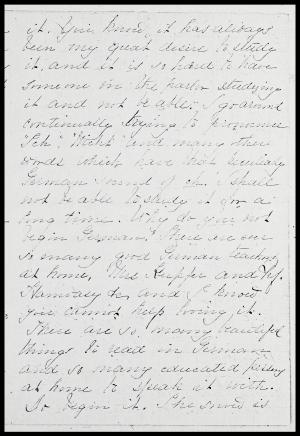 it. You know, it has always
been my great desire to study
it, and it is so hard to have
someone in the parlor studying
it and not be able. I go around
continually trying to pronounce
"Ich" "Nicht" and many other
words which have that peculiar
German sound of ch. I shall
not be able to study it for a
long time. Why do you not
begin German? There are
so many good German teachers
at home, Mrs. and
and I know
you cannot help loving it.
There are so many beautiful
things to read in German
and so many educated
at home to speak it with.
So begin it. The snow is